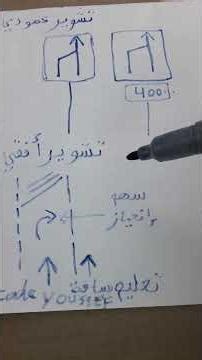 تشوير عمودي
400م
تشوير أفقي
سهم
إنحياز
code youssef
تعليم سياقة